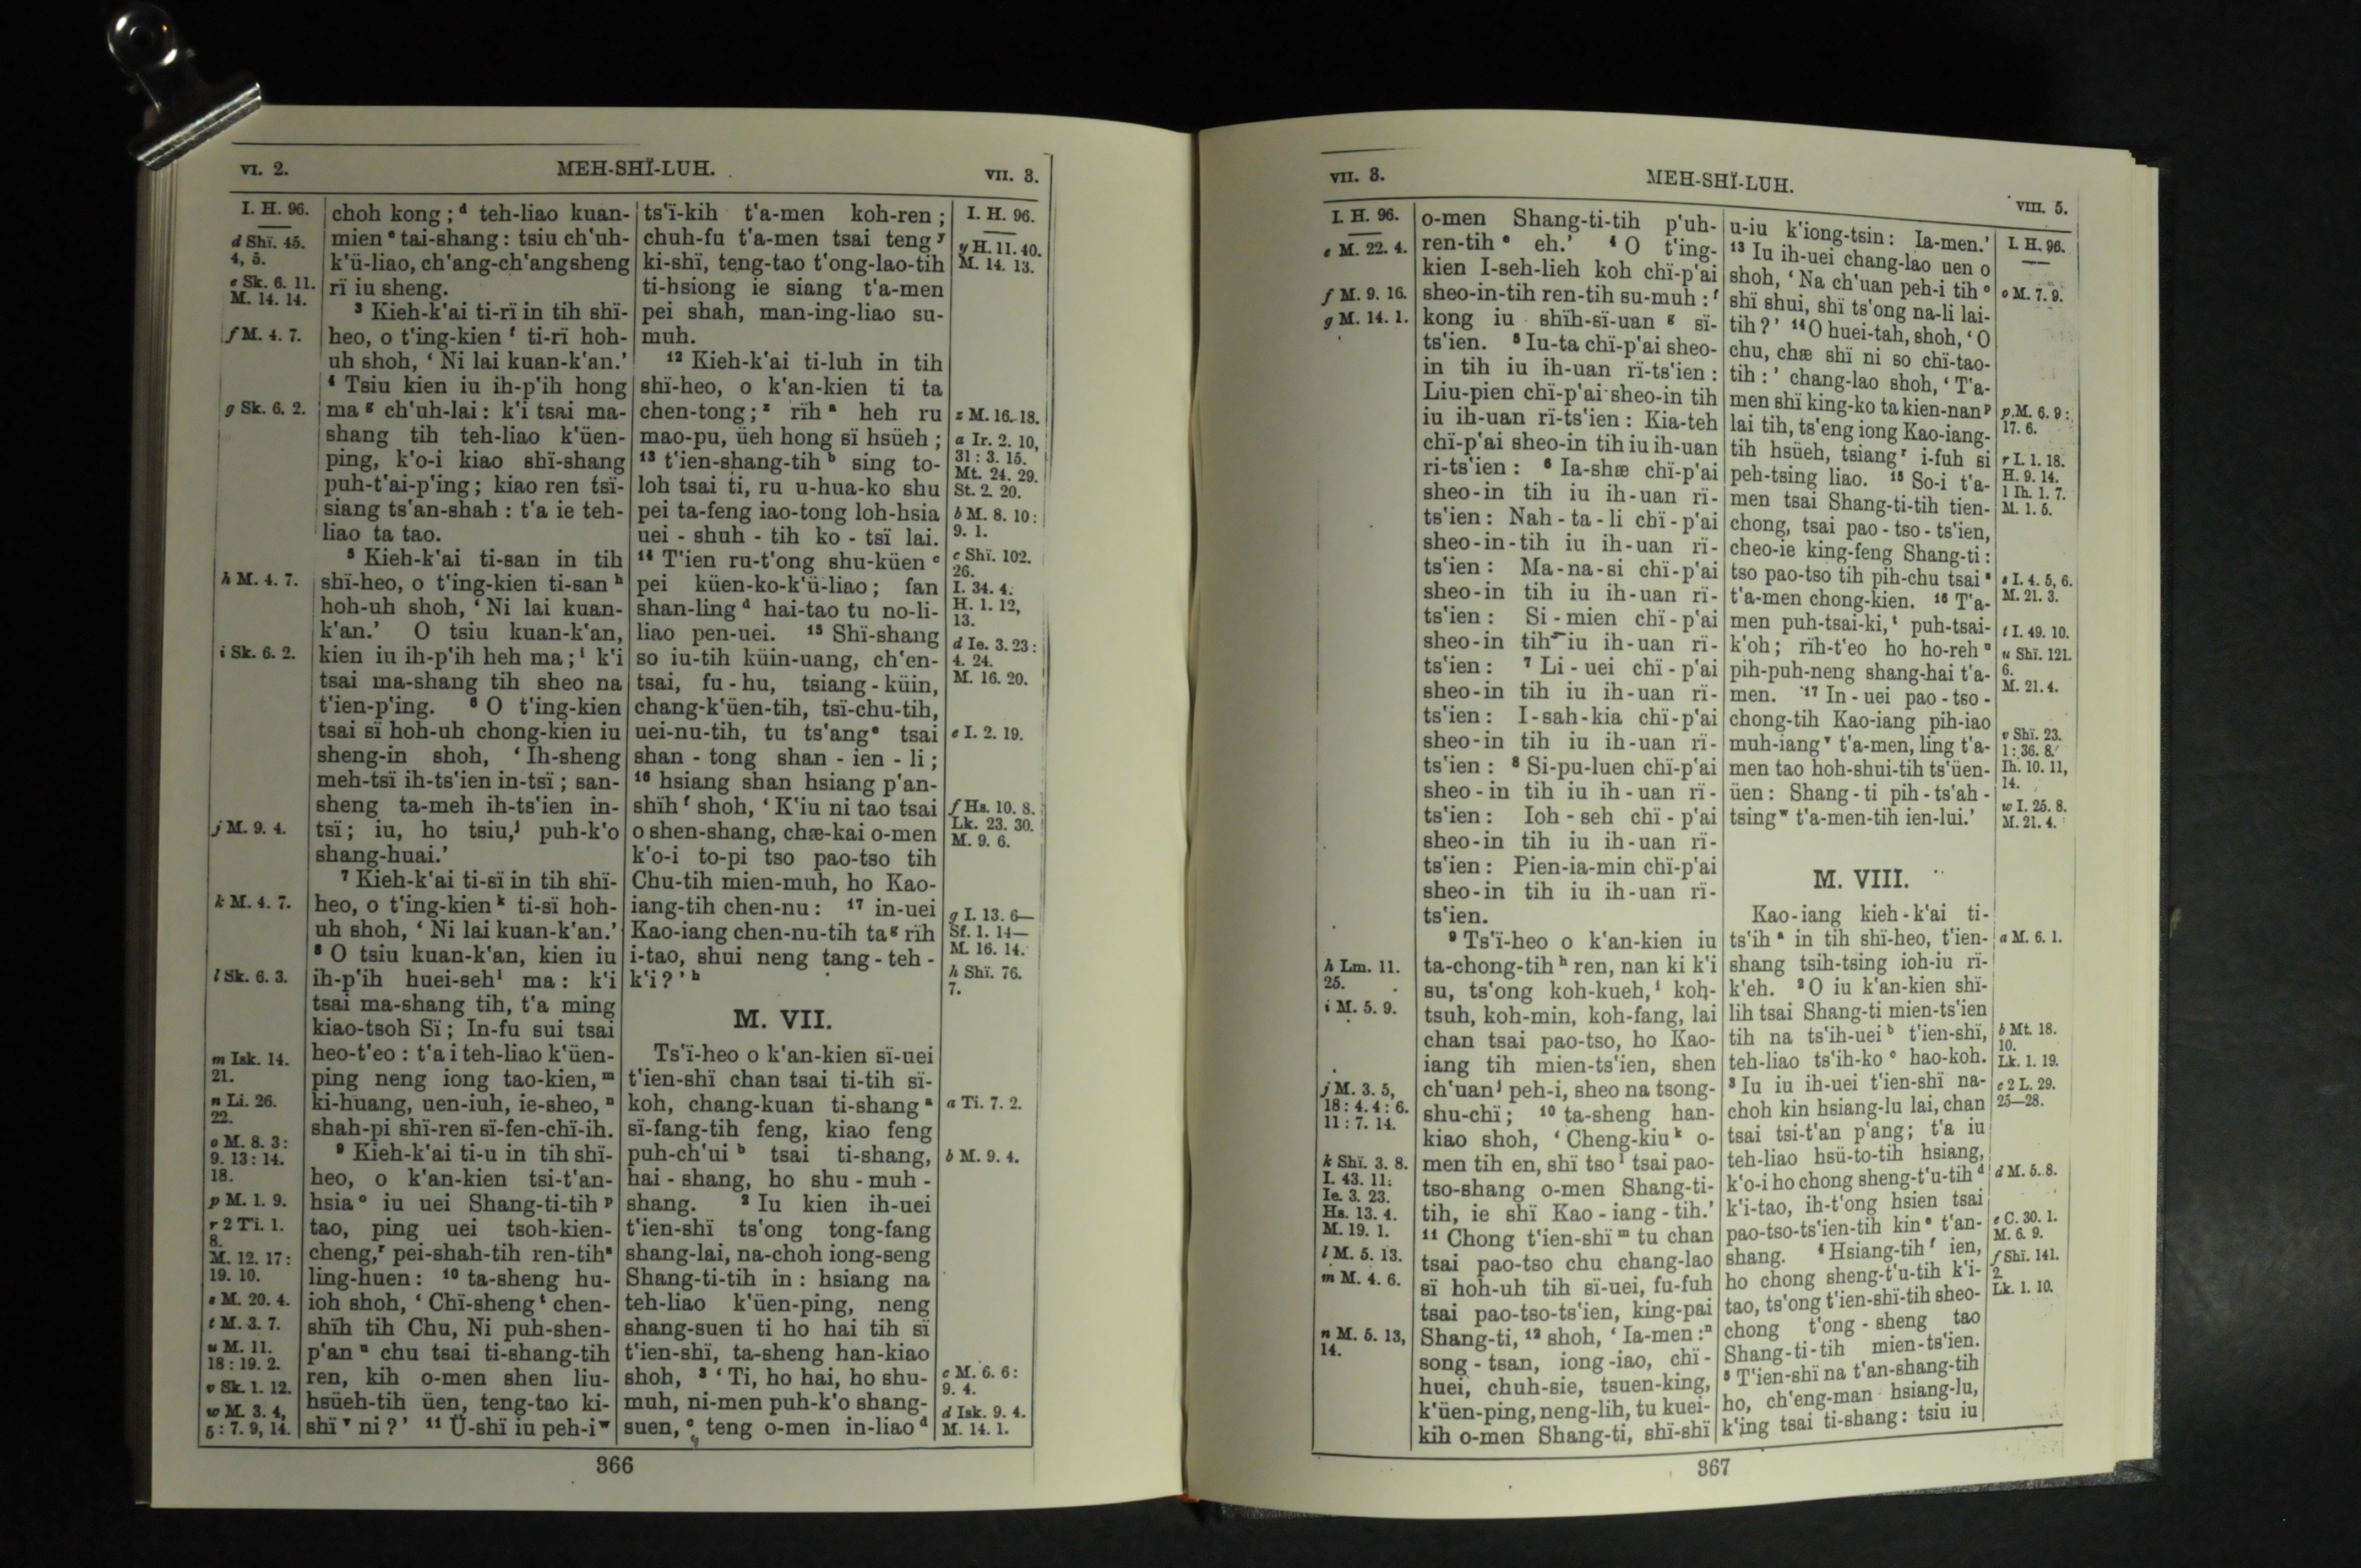 VI. 2.
MEH-SHÏ-LUH.
VII. 3.
I. H. 96.
d Shï. 45.
4, 5.
e Sk. 6. 11.
M. 14. 14.
f M. 4. 7.
g Sk. 6. 2.
h M. 4. 7.
i Sk. 6. 2.
j M. 9. 4.
k M. 4. 7.
l Sk. 6. 3.
m Isk. 14.
21.
n Li. 26.
22.
o M. 8. 3:
9. 13: 14.
18.
p M. 1. 9.
r 2 Ti. 1.
8.
M. 12. 17:
19. 10.
s M. 20. 4.
t M. 3. 7.
u M. 11.
18: 19. 2.
v Sk. 1. 12.
w M. 3. 4,
5: 7. 9, 14.
choh kong; ᵈ teh-liao kuan-
mien ᵉ tai-shang: tsiu ch‘uh-
k‘ü-liao, ch‘ang-ch‘angsheng
rï iu sheng.
³ Kieh-k‘ai ti-rï in tih shï-
heo, o t‘ing-kien ᶠ ti-rï hoh-
uh shoh, ‘ Ni lai kuan-k‘an.’
⁴ Tsiu kien iu ih-p‘ih hong
ma ᵍ ch‘uh-lai: k‘i tsai ma-
shang tih teh-liao k‘üen-
ping, k‘o-i kiao shï-shang
puh-t‘ai-p‘ing; kiao ren tsï-
siang ts‘an-shah: t‘a ie teh-
liao ta tao.
⁵ Kieh-k‘ai ti-san in tih
shï-heo, o t‘ing-kien ti-san ʰ
hoh-uh shoh, ‘ Ni lai kuan-
k‘an.’ O tsiu kuan-k‘an,
kien iu ih-p‘ih heh ma; ⁱ k‘i
tsai ma-shang tih sheo na
t‘ien-p‘ing. ⁶ O t‘ing-kien
tsai sï hoh-uh chong-kien iu
sheng-in shoh, ‘ Ih-sheng
meh-tsï ih-ts‘ien in-tsï; san-
sheng ta-meh ih-ts‘ien in-
tsï; iu, ho tsiu, ʲ puh-k‘o
shang-huai.’
⁷ Kieh-k‘ai ti-sï in tih shï-
heo, o t‘ing-kien ᵏ ti-sï hoh-
uh shoh, ‘ Ni lai kuan-k‘an.’
⁸ O tsiu kuan-k‘an, kien iu
ih-p‘ih huei-seh ˡ ma: k‘i
tsai ma-shang tih, t‘a ming
kiao-tsoh Sï; In-fu sui tsai
heo-t‘eo: t‘a i teh-liao k‘üen-
ping neng iong tao-kien, ᵐ
ki-huang, uen-iuh, ie-sheo, ⁿ
shah-pi shï-ren sï-fen-chï-ih.
⁹ Kieh-k‘ai ti-u in tih shï-
heo, o k‘an-kien tsi-t‘an-
hsia ᵒ iu uei Shang-ti-tih ᵖ
tao, ping uei tsoh-kien-
cheng, ʳ pei-shah-tih ren-tih ˢ
ling-huen: ¹⁰ ta-sheng hu-
ioh shoh, ‘ Chï-sheng ᵗ chen-
shïh tih Chu, Ni puh-shen-
p‘an ᵘ chu tsai ti-shang-tih
ren, kih o-men shen liu-
hsüeh-tih üen, teng-tao ki-
shï ᵛ ni?’ ¹¹ Ü-shï iu peh-i ʷ
ts‘ï-kih t‘a-men koh-ren;
chuh-fu t‘a-men tsai teng ʸ
ki-shï, teng-tao t‘ong-lao-tih
ti-hsiong ie siang t‘a-men
pei shah, man-ing-liao su-
muh.
¹² Kieh-k‘ai ti-luh in tih
shï-heo, o k‘an-kien ti ta
chen-tong; ᶻ rïh ᵃ heh ru
mao-pu, üeh hong sï hsüeh;
¹³ t‘ien-shang-tih ᵇ sing to-
loh tsai ti, ru u-hua-ko shu
pei ta-feng iao-tong loh-hsia
uei-shuh-tih ko-tsï lai.
¹⁴ T‘ien ru-t‘ong shu-küen ᶜ
pei küen-ko-k‘ü-liao; fan
shan-ling ᵈ hai-tao tu no-li-
liao pen-uei. ¹⁵ Shï-shang
so iu-tih küin-uang, ch‘en-
tsai, fu-hu, tsiang-küin,
chang-k‘üen-tih, tsï-chu-tih,
uei-nu-tih, tu ts‘ang ᵉ tsai
shan-tong shan-ien-li;
¹⁶ hsiang shan hsiang p‘an-
shïh ᶠ shoh, ‘ K‘iu ni tao tsai
o shen-shang, chæ-kai o-men
k‘o-i to-pi tso pao-tso tih
Chu-tih mien-muh, ho Kao-
iang-tih chen-nu: ¹⁷ in-uei
Kao-iang chen-nu-tih ta ᵍ rïh
i-tao, shui neng tang-teh-
k‘i?’ ʰ
M. VII.
Ts‘ï-heo o k‘an-kien sï-uei
t‘ien-shï chan tsai ti-tih sï-
koh, chang-kuan ti-shang ᵃ
sï-fang-tih feng, kiao feng
puh-ch‘ui ᵇ tsai ti-shang,
hai-shang, ho shu-muh-
shang. ² Iu kien ih-uei
t‘ien-shï ts‘ong tong-fang
shang-lai, na-choh iong-seng
Shang-ti-tih in: hsiang na
teh-liao k‘üen-ping, neng
shang-suen ti ho hai tih sï
t‘ien-shï, ta-sheng han-kiao
shoh, ³ ‘ Ti, ho hai, ho shu-
muh, ni-men puh-k‘o shang-
suen, ᶜ teng o-men in-liao ᵈ
I. H. 96.
y H. 11. 40.
M. 14. 13.
z M. 16. 18.
a Ir. 2. 10,
31: 3. 15.
Mt. 24. 29.
St. 2. 20.
b M. 8. 10:
9. 1.
c Shï. 102.
26.
I. 34. 4.
H. 1. 12,
13.
d Ie. 3. 23:
4. 24.
M. 16. 20.
e I. 2. 19.
f Hs. 10. 8.
Lk. 23. 30.
M. 9. 6.
g I. 13. 6—
Sf. 1. 14—
M. 16. 14.
h Shï. 76.
7.
a Ti. 7. 2.
b M. 9. 4.
c M. 6. 6:
9. 4.
d Isk. 9. 4.
M. 14. 1.
366
VII. 3.
MEH-SHÏ-LUH.
VIII. 5.
I. H. 96.
e M. 22. 4.
f M. 9. 16.
g M. 14. 1.
h Lm. 11.
25.
i M. 5. 9.
j M. 3. 5,
18: 4. 4: 6.
11: 7. 14.
k Shï. 3. 8.
I. 43. 11:
Ie. 3. 23.
Hs. 13. 4.
M. 19. 1.
l M. 5. 13.
m M. 4. 6.
n M. 5. 13,
14.
o-men Shang-ti-tih p‘uh-
ren-tih ᵉ eh.’ ⁴ O t‘ing-
kien I-seh-lieh koh chï-p‘ai
sheo-in-tih ren-tih su-muh: ᶠ
kong iu shïh-sï-uan ᵍ sï-
ts‘ien. ⁵ Iu-ta chï-p‘ai sheo-
in tih iu ih-uan rï-ts‘ien:
Liu-pien chï-p‘ai sheo-in tih
iu ih-uan rï-ts‘ien: Kia-teh
chï-p‘ai sheo-in tih iu ih-uan
ri-ts‘ien: ⁶ Ia-shæ chï-p‘ai
sheo-in tih iu ih-uan rï-
ts‘ien: Nah-ta-li chï-p‘ai
sheo-in-tih iu ih-uan rï-
ts‘ien: Ma-na-si chï-p‘ai
sheo-in tih iu ih-uan rï-
ts‘ien: Si-mien chï-p‘ai
sheo-in tih iu ih-uan rï-
ts‘ien: ⁷ Li-uei chï-p‘ai
sheo-in tih iu ih-uan rï-
ts‘ien: I-sah-kia chï-p‘ai
sheo-in tih iu ih-uan rï-
ts‘ien: ⁸ Si-pu-luen chï-p‘ai
sheo-in tih iu ih-uan rï-
ts‘ien: Ioh-seh chï-p‘ai
sheo-in tih iu ih-uan rï-
ts‘ien: Pien-ia-min chï-p‘ai
sheo-in tih iu ih-uan rï-
ts‘ien.
⁹ Ts‘ï-heo o k‘an-kien iu
ta-chong-tih ʰ ren, nan ki k‘i
su, ts‘ong koh-kueh, ⁱ koh-
tsuh, koh-min, koh-fang, lai
chan tsai pao-tso, ho Kao-
iang tih mien-ts‘ien, shen
ch‘uan ʲ peh-i, sheo na tsong-
shu-chï; ¹⁰ ta-sheng han-
kiao shoh, ‘ Cheng-kiu ᵏ o-
men tih en, shï tso ˡ tsai pao-
tso-shang o-men Shang-ti-
tih, ie shï Kao-iang-tih.’
¹¹ Chong t‘ien-shï ᵐ tu chan
tsai pao-tso chu chang-lao
sï hoh-uh tih sï-uei, fu-fuh
tsai pao-tso-ts‘ien, king-pai
Shang-ti, ¹² shoh, ‘ Ia-men: ⁿ
song-tsan, iong-iao, chï-
huei, chuh-sie, tsuen-king,
k‘üen-ping, neng-lih, tu kuei-
kih o-men Shang-ti, shï-shï
u-iu k‘iong-tsin: Ia-men.’
¹³ Iu ih-uei chang-lao uen o
shoh, ‘ Na ch‘uan peh-i tih ᵒ
shï shui, shï ts‘ong na-li lai-
tih?’ ¹⁴ O huei-tah, shoh, ‘ O
chu, chæ shï ni so chï-tao-
tih:’ chang-lao shoh, ‘ T‘a-
men shï king-ko ta kien-nan ᵖ
lai tih, ts‘eng iong Kao-iang-
tih hsüeh, tsiang ʳ i-fuh si
peh-tsing liao. ¹⁵ So-i t‘a-
men tsai Shang-ti-tih tien-
chong, tsai pao-tso-ts‘ien,
cheo-ie king-feng Shang-ti:
tso pao-tso tih pih-chu tsai ˢ
t‘a-men chong-kien. ¹⁶ T‘a-
men puh-tsai-ki, ᵗ puh-tsai-
k‘oh; rïh-t‘eo ho ho-reh ᵘ
pih-puh-neng shang-hai t‘a-
men. ¹⁷ In-uei pao-tso-
chong-tih Kao-iang pih-iao
muh-iang ᵛ t‘a-men, ling t‘a-
men tao hoh-shui-tih ts‘üen-
üen: Shang-ti pih-ts‘ah-
tsing ʷ t‘a-men-tih ien-lui.’
M. VIII.
Kao-iang kieh-k‘ai ti-
ts‘ih ᵃ in tih shï-heo, t‘ien-
shang tsih-tsing ioh-iu rï-
k‘eh. ² O iu k‘an-kien shï-
lih tsai Shang-ti mien-ts‘ien
tih na ts‘ih-uei ᵇ t‘ien-shï,
teh-liao ts‘ih-ko ᶜ hao-koh.
³ Iu iu ih-uei t‘ien-shï na-
choh kin hsiang-lu lai, chan
tsai tsi-t‘an p‘ang; t‘a iu
teh-liao hsü-to-tih hsiang,
k‘o-i ho chong sheng-t‘u-tih ᵈ
k‘i-tao, ih-t‘ong hsien tsai
pao-tso-ts‘ien-tih kin ᵉ t‘an-
shang. ⁴ Hsiang-tih ᶠ ien,
ho chong sheng-t‘u-tih k‘i-
tao, ts‘ong t‘ien-shï-tih sheo-
chong t‘ong-sheng tao
Shang-ti-tih mien-ts‘ien.
⁵ T‘ien-shï na t‘an-shang-tih
ho, ch‘eng-man hsiang-lu,
k‘ing tsai ti-shang: tsiu iu
I. H. 96.
o M. 7. 9.
p M. 6. 9:
17. 6.
r I. 1. 18.
H. 9. 14.
1 Ih. 1. 7.
M. 1. 5.
s I. 4. 5, 6.
M. 21. 3.
t I. 49. 10.
u Shï. 121.
6.
M. 21. 4.
v Shï. 23.
1: 36. 8.
Ih. 10. 11,
14.
w I. 25. 8.
M. 21. 4.
a M. 6. 1.
b Mt. 18.
10.
Lk. 1. 19.
c 2 L. 29.
25—28.
d M. 5. 8.
e C. 30. 1.
M. 6. 9.
f Shï. 141.
2.
Lk. 1. 10.
367